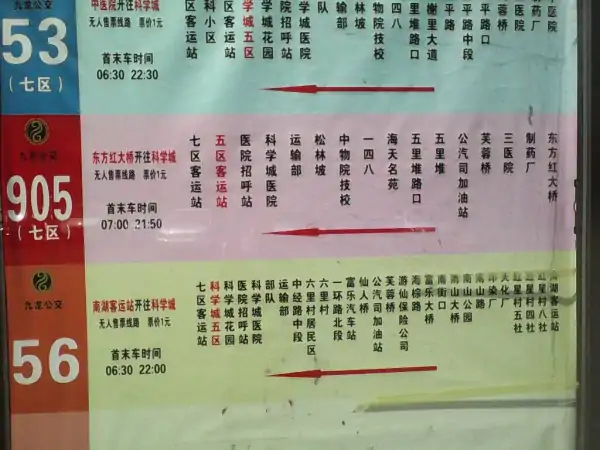 九龙公交
53
(七区)
中医院开往科学城
无人售票线路 票价1元
首末车时间
06:30 22:30
区客运站
科小区
区客运站
学城五区
学城花园
院招呼站
学城医院
队
输部
林坡
物院校校
四八
里堆路口
榭里大道
平路中段
平路口
蓉桥
医院
药厂
医院
905
(七区)
东方红大桥开往科学城
无人售票线路 票价1元
首末车时间
07:00 21:50
七区客运站
五区客运站
医院招呼站
科学城医院
运输部
松林坡
中物院技校
一四八
海天名苑
五里堆路口
五里堆
公汽司加油站
芙蓉桥
三医院
制药厂
东方红大桥
九龙公交
56
南湖客运站开往科学城
无人售票线路 票价1元
首末车时间
06:30 22:00
七区客运站
科学城五区
科学城花园
医院招呼站
科学城医院
部队
运输部
中经路中段
六里村居民区
六里村
一环路北段
富乐汽车站
仙人桥
公汽司加油站
芙蓉桥
游仙保险公司
海棕路
富乐大桥
南街口
南山大桥
南山公园
南山路
印染厂
红星村五社
红星村四社
红星村八社
南湖客运站